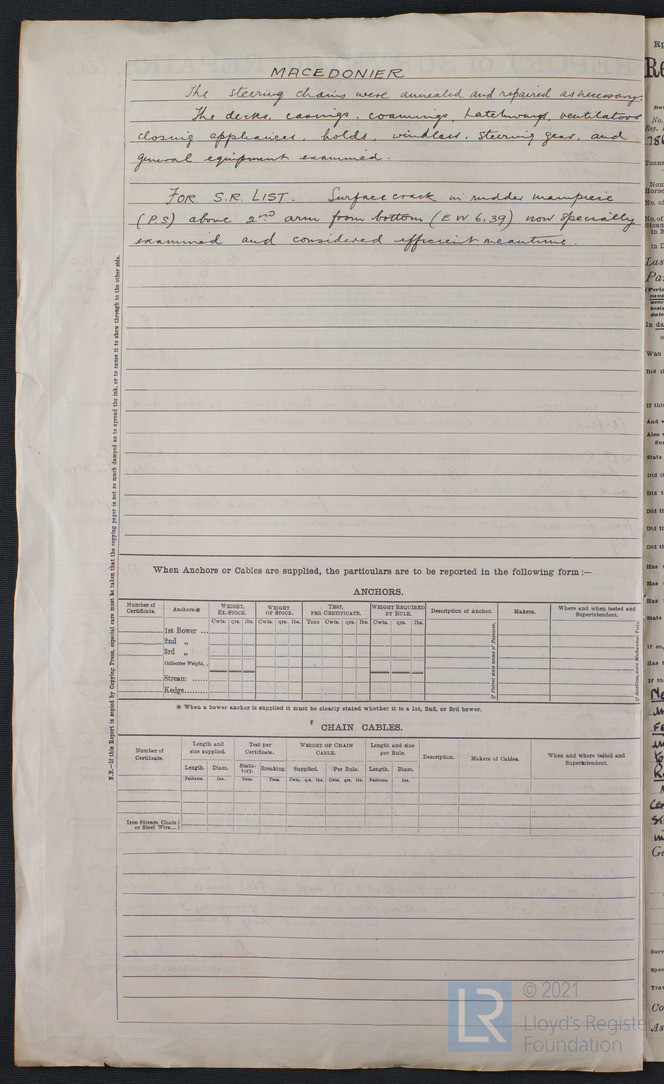 MACEDONIER
The steering chains were annealed and repaired as necessary.
The decks, casings, coamings, hatchways, ventilators
closing appliances, holds, windlass, steering gear, and
general equipment examined.
FOR S.R. LIST. Surface crack in rudder mainpiece
(P.S) above 2nd arm from bottom (E.W. 6.39) now specially
examined and considered efficient meantime.
N.B.—If this Report is copied by Copying Press, especial care must be taken that the copying paper is not so much damped as to spread the ink, or to cause it to show through to the other side.
When Anchors or Cables are supplied, the particulars are to be reported in the following form :—
ANCHORS.
Number of Certificate. Anchors.* WEIGHT, EX. STOCK. WEIGHT OF STOCK. TEST, PER CERTIFICATE. WEIGHT REQUIRED BY RULE. Description of Anchor. Makers. Where and when tested and Superintendent.
Cwts. qrs. lbs. Cwts. qrs. lbs. Tons Cwts. qrs. lbs. Cwts. qrs. lbs.
1st Bower ...
2nd „
3rd „
Collective Weight.
Stream ......
Kedge.........
If Patent state name of Patentee.
* When a bower anchor is supplied it must be clearly stated whether it is a 1st, 2nd, or 3rd bower.
CHAIN CABLES.
Number of Certificate. Length and size supplied. Test per Certificate. WEIGHT OF CHAIN CABLE. Length and size per Rule. Description. Makers of Cables. When and where tested and Superintendent.
Length. Diam. Statutory. Breaking. Supplied. Per Rule. Length. Diam.
Fathoms. Ins. Tons. Tons. Cwts. qrs. lbs. Cwts. qrs. lbs. Fathoms. Ins.
Iron Stream Chain
or Steel Wire...
LR
© 2021
Lloyd's Register
Foundation